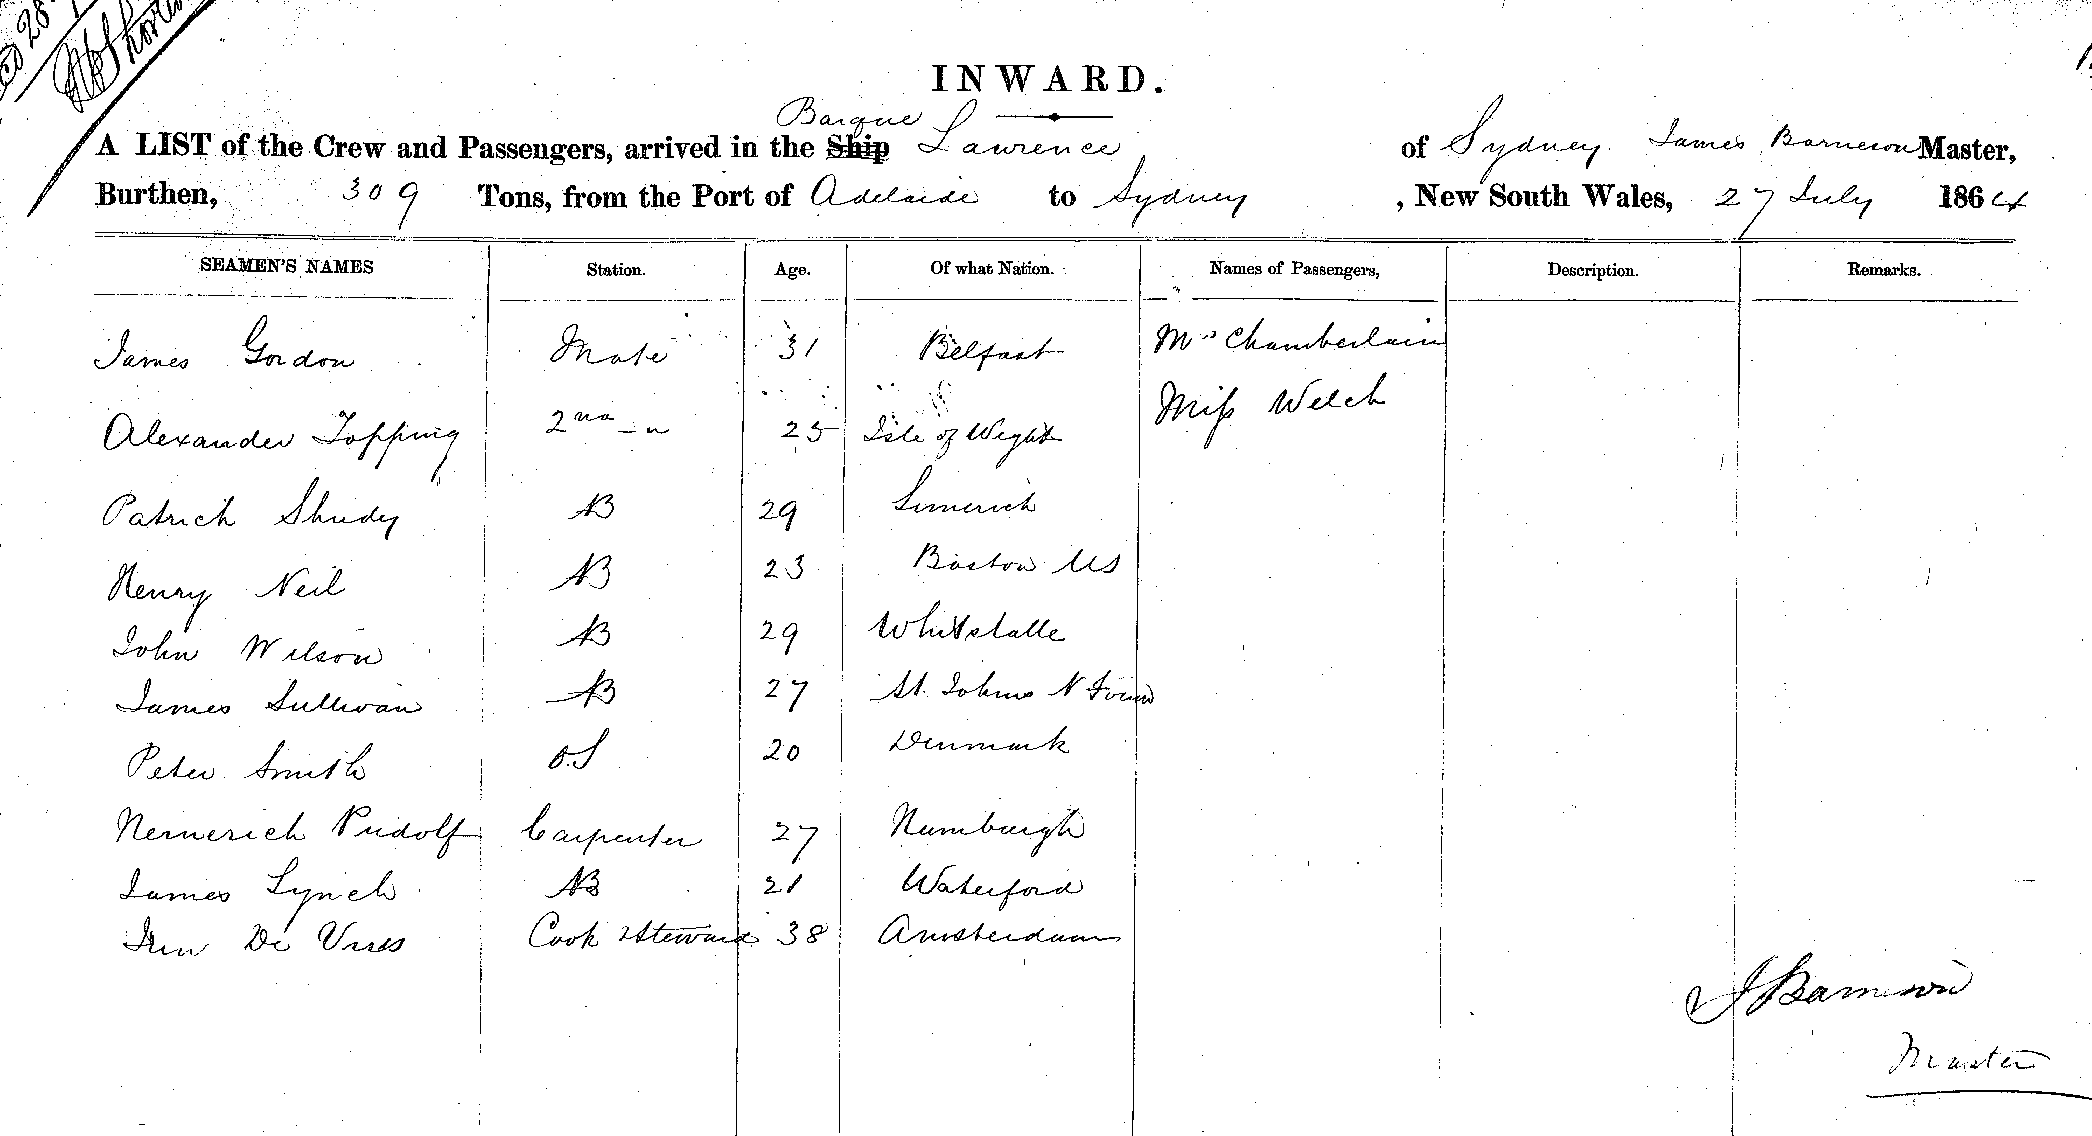 28
INWARD.
Barque
A LIST of the Crew and Passengers, arrived in the Ship Lawrence of Sydney James Barneson Master,
Burthen, 309 Tons, from the Port of Adelaide to Sydney, New South Wales, 27 July 1864
SEAMEN'S NAMES Station. Age. Of what Nation. Names of Passengers, Description. Remarks.
James Gordon Mate 31 Belfast Mrs Chamberlain
Alexander Topping 2nd " 25 Isle of Wight Miss Welch
Patrick Shudy AB 29 Limerick
Henry Neil AB 23 Boston US
John Wilson AB 29 Whitstable
James Sullivan AB 27 St. Johns N Found
Peter Smith O.S 20 Denmark
Rudolf Carpenter 27 Hamburgh
James Lynch AB 21 Waterford
De Vries Cook & Steward 38 Amsterdam
J Barneson
Master